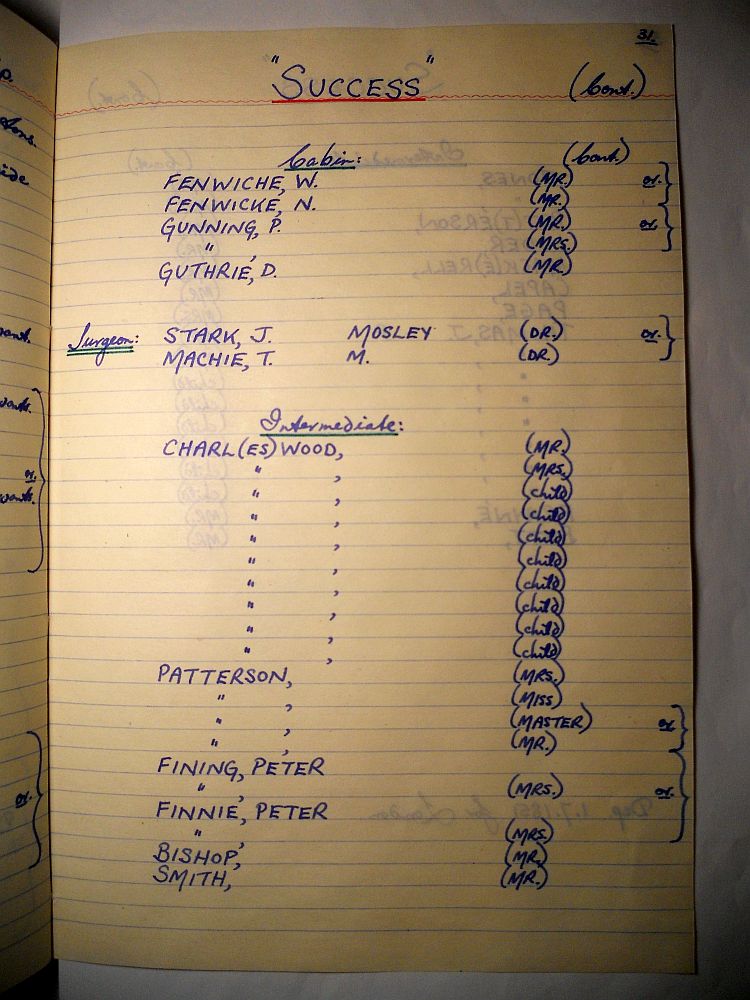 31.
"SUCCESS" (Cont.)
Cabin: (Cont.)
FENWICHE, W. (MR.) or.
FENWICKE, N. (MR.)
GUNNING, P. (MR.) or.
" , (MRS.)
GUTHRIE, D. (MR.)
Surgeon: STARK, J. MOSLEY (DR.) or.
MACHIE, T. M. (DR.)
Intermediate:
CHARL(ES)WOOD, (MR.)
" , (MRS.)
" , (child)
" , (child)
" , (child)
" , (child)
" , (child)
" , (child)
" , (child)
" , (child)
PATTERSON, (MRS.)
" , (MISS)
" , (MASTER) or.
" , (MR.)
FINING, PETER
" , (MRS.) or.
FINNIE, PETER
" , (MRS.)
BISHOP, (MR.)
SMITH, (MR.)